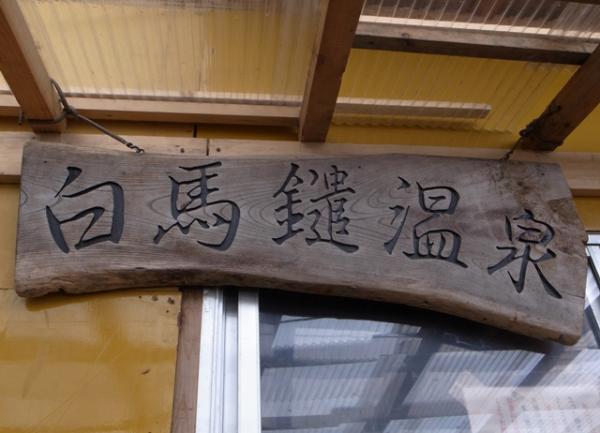 白馬鑓温泉